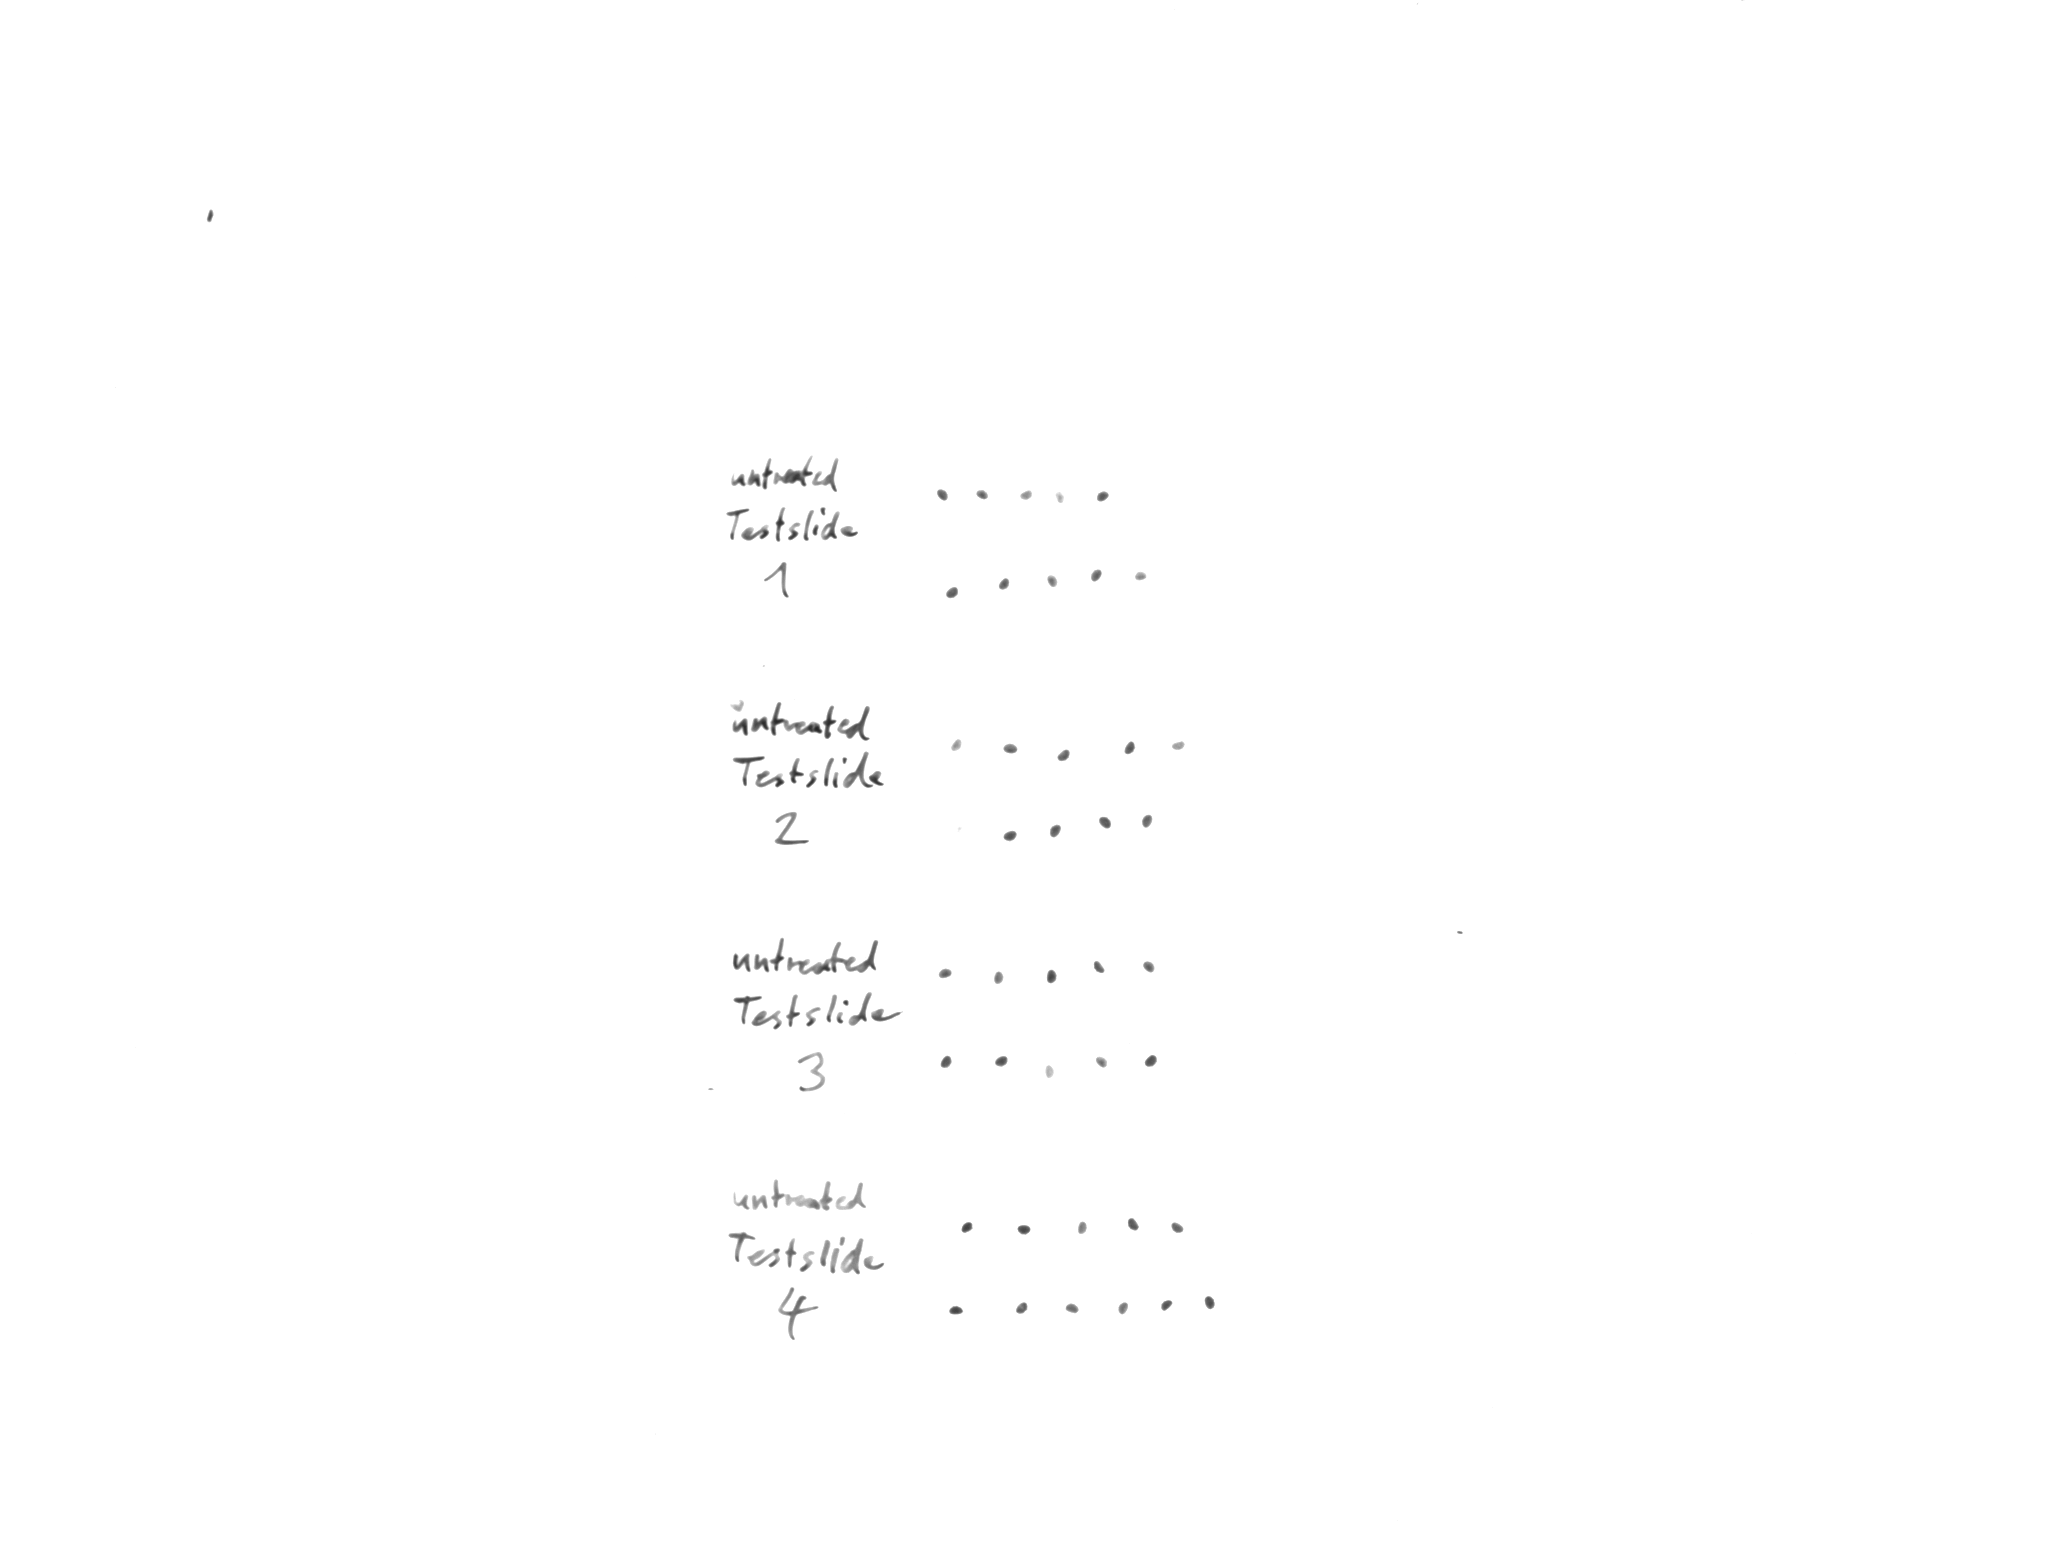 untreated
Testslide
1
untreated
Testslide
2
untreated
Testslide
3
untreated
Testslide
4